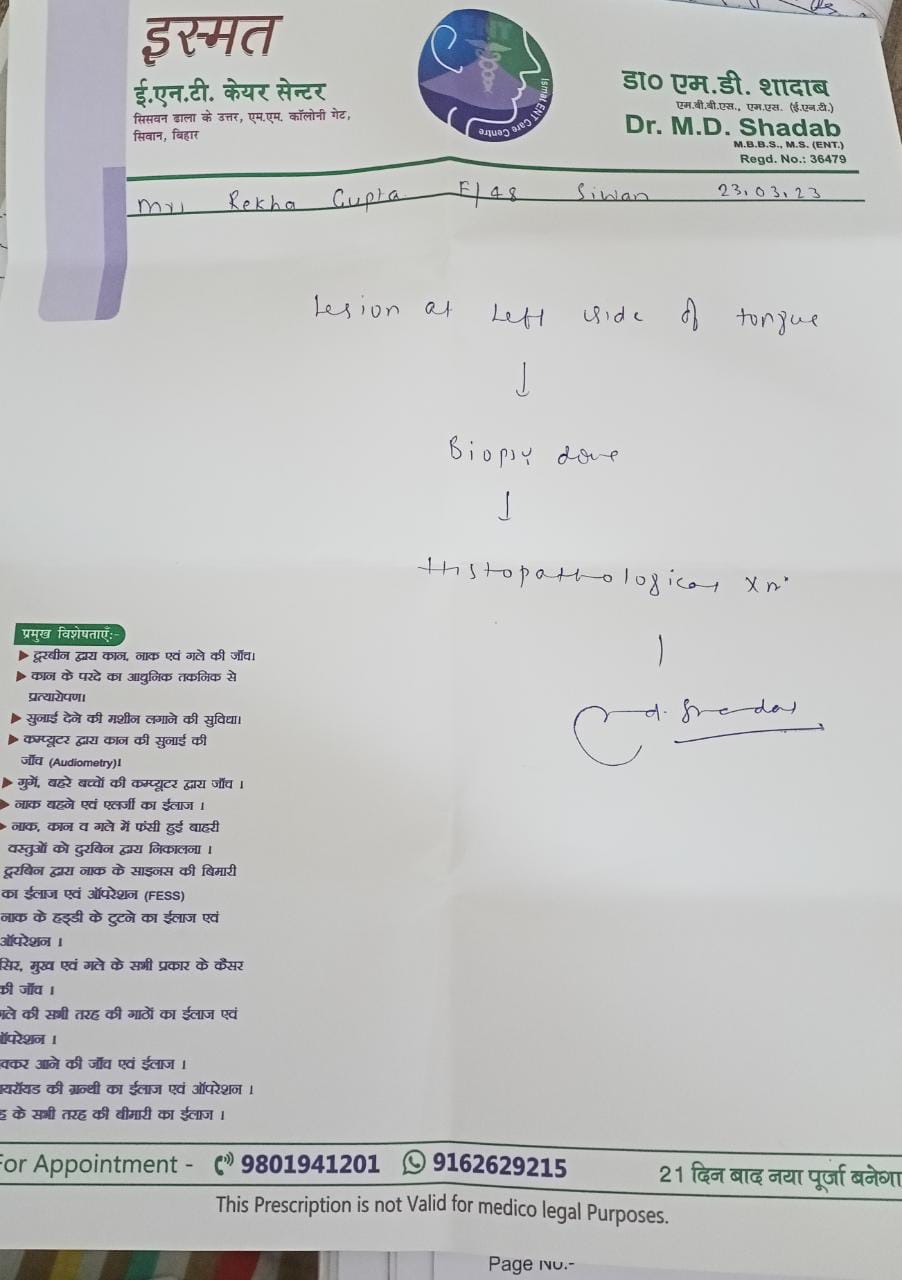 इस्मत
ई.एन.टी. केयर सेन्टर
सिसवन ढाला के उत्तर, एम.एम. कॉलोनी गेट,
सिवान, बिहार
Ismat ENT Care Centre
डा० एम.डी. शादाब
एम.बी.बी.एस., एम.एस. (ई.एन.टी.)
Dr. M.D. Shadab
M.B.B.S., M.S. (ENT.)
Regd. No.: 36479
Mrs Rekha Gupta F/48 Siwan 23.03.23
Lesion at Left side of tongue
Biopsy done
Histopathological Xn.
प्रमुख विशेषताएँ:-
दूरबीन द्वारा कान, नाक एवं गले की जाँच।
कान के परदे का आधुनिक तकनिक से
प्रत्यारोपण।
सुनाई देने की मशीन लगाने की सुविधा।
कम्प्यूटर द्वारा कान की सुनाई की
जाँच (Audiometry)।
गुगें, बहरे बच्चों की कम्प्यूटर द्वारा जाँच ।
नाक बहने एवं एलर्जी का ईलाज ।
नाक, कान व गले में फंसी हुई बाहरी
वस्तुओं को दुरबिन द्वारा निकालना ।
दूरबिन द्वारा नाक के साइनस की बिमारी
का ईलाज एवं ऑपरेशन (FESS)
नाक के हड्डी के टुटने का ईलाज एवं
ऑपरेशन ।
सिर, मुख एवं गले के सभी प्रकार के कैंसर
की जाँच ।
गले की सभी तरह की गाठों का ईलाज एवं
ऑपरेशन ।
चक्कर आने की जाँच एवं ईलाज ।
थायरॉयड की ग्रन्थी का ईलाज एवं ऑपरेशन ।
के सभी तरह की बीमारी का ईलाज ।
For Appointment - 9801941201 9162629215
21 दिन बाद नया पूर्जा बनेगा
This Prescription is not Valid for medico legal Purposes.
Page No.-